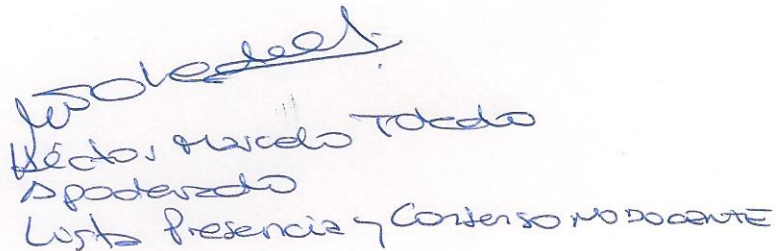 Héctor Marcelo Toledo
Apoderado
Lista Presencia y Consenso NO DOCENTE